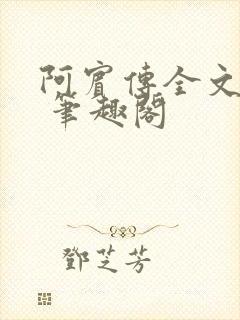 阿賓傳全文
筆趣閣
鄧芝芳